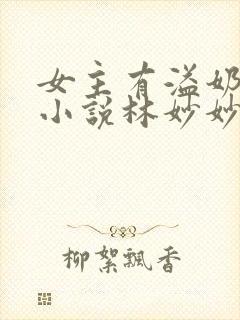 女主有溢奶
小说林妙妙
柳絮飘香